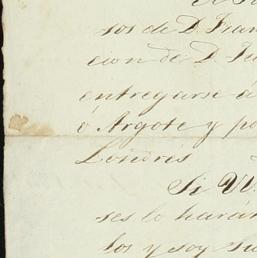 sos de D. Fran
cion de D. Ju
entregarse á
o Argote y po
Londres
Si W.
ses lo harán
los y soy su